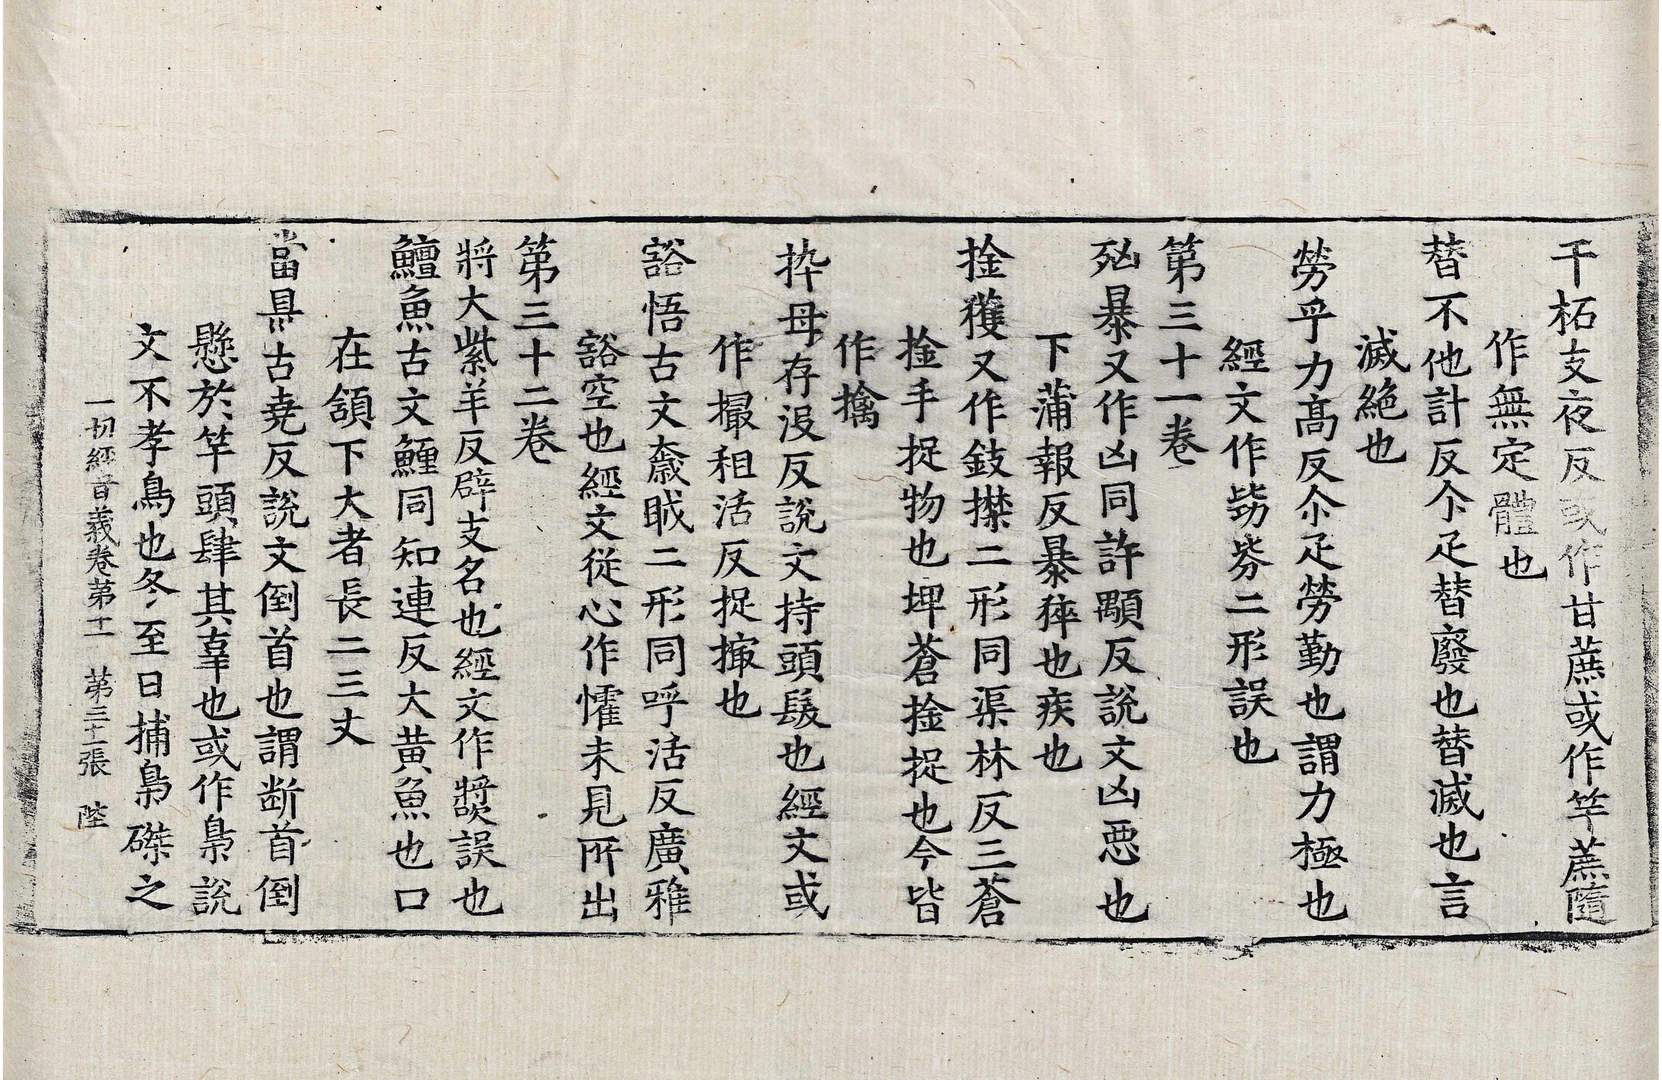 干柘支夜反或作甘蔗或作竿蔗隨
作無定體也
替不他計反尒疋替廢也替滅也言
滅絶也
勞乎力髙反尒疋勞勤也謂力極也
經文作㔟二形誤也
第三十一卷
兇暴又作凶同許顒反說文凶惡也
下蒲報反暴猝也疾也
捦獲又作鈙㩒二形同渠林反三蒼
捦手捉物也埤蒼捦捉也今皆
作擒
捽母存没反說文持頭髮也經文或
作撮租活反捉撮也
豁悟古文奯眓二形同呼活反廣雅
豁空也經文從心作懽未見所出
第三十二卷
將大紫羊反辟支名也經文作奬誤也
鱣魚古文鱓同知連反大黄魚也口
在頷下大者長二三丈
當県古堯反說文倒首也謂断首倒
懸於竿頭肆其辜也或作梟說
文不孝鳥也冬至日捕梟磔之
一切經音義卷第十一 第三十一張 陛